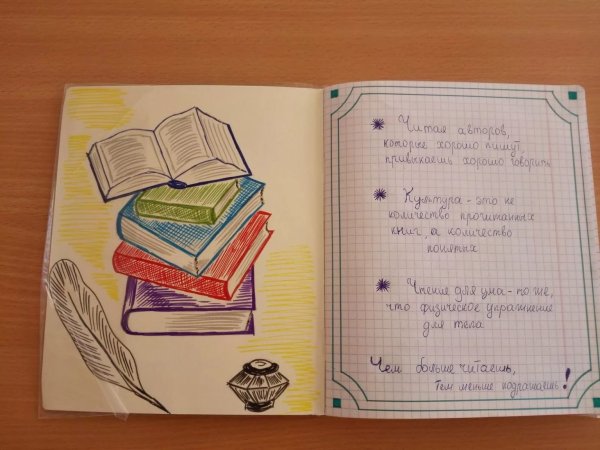 Читая авторов,
которые хорошо пишут,
привыкаешь хорошо говорить
Культура - это не
количество прочитанных
книг, а количество
понятых
Чтение для ума - то же,
что физическое упражнение
для тела
Чем больше читаешь,
тем меньше подражаешь!